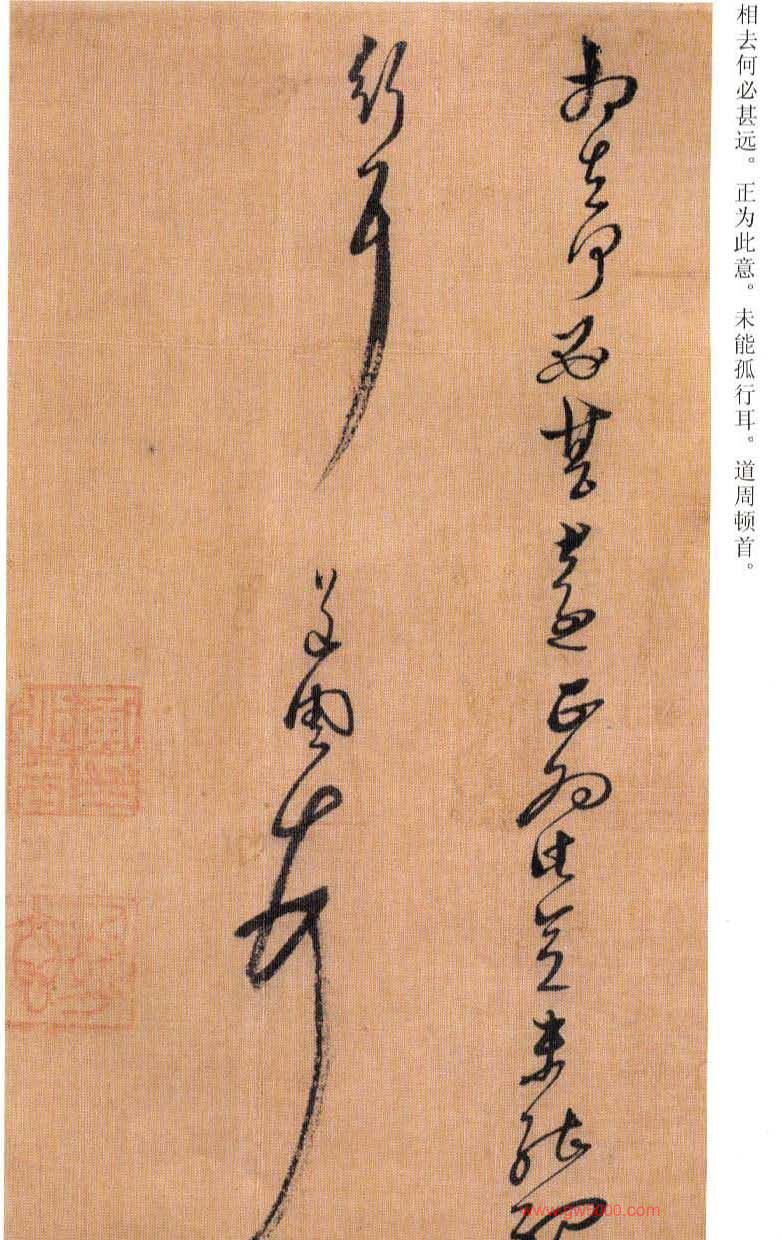 相去何必甚远。正为此意。未能孤行耳。道周顿首。
相去何必甚遠正為此意未能孤
行耳
道周頓首
www.gw8000.com